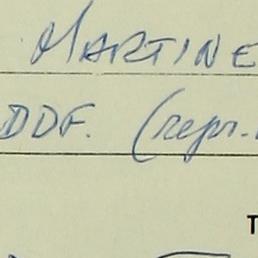 MARTINE
DDF. (repr.
T